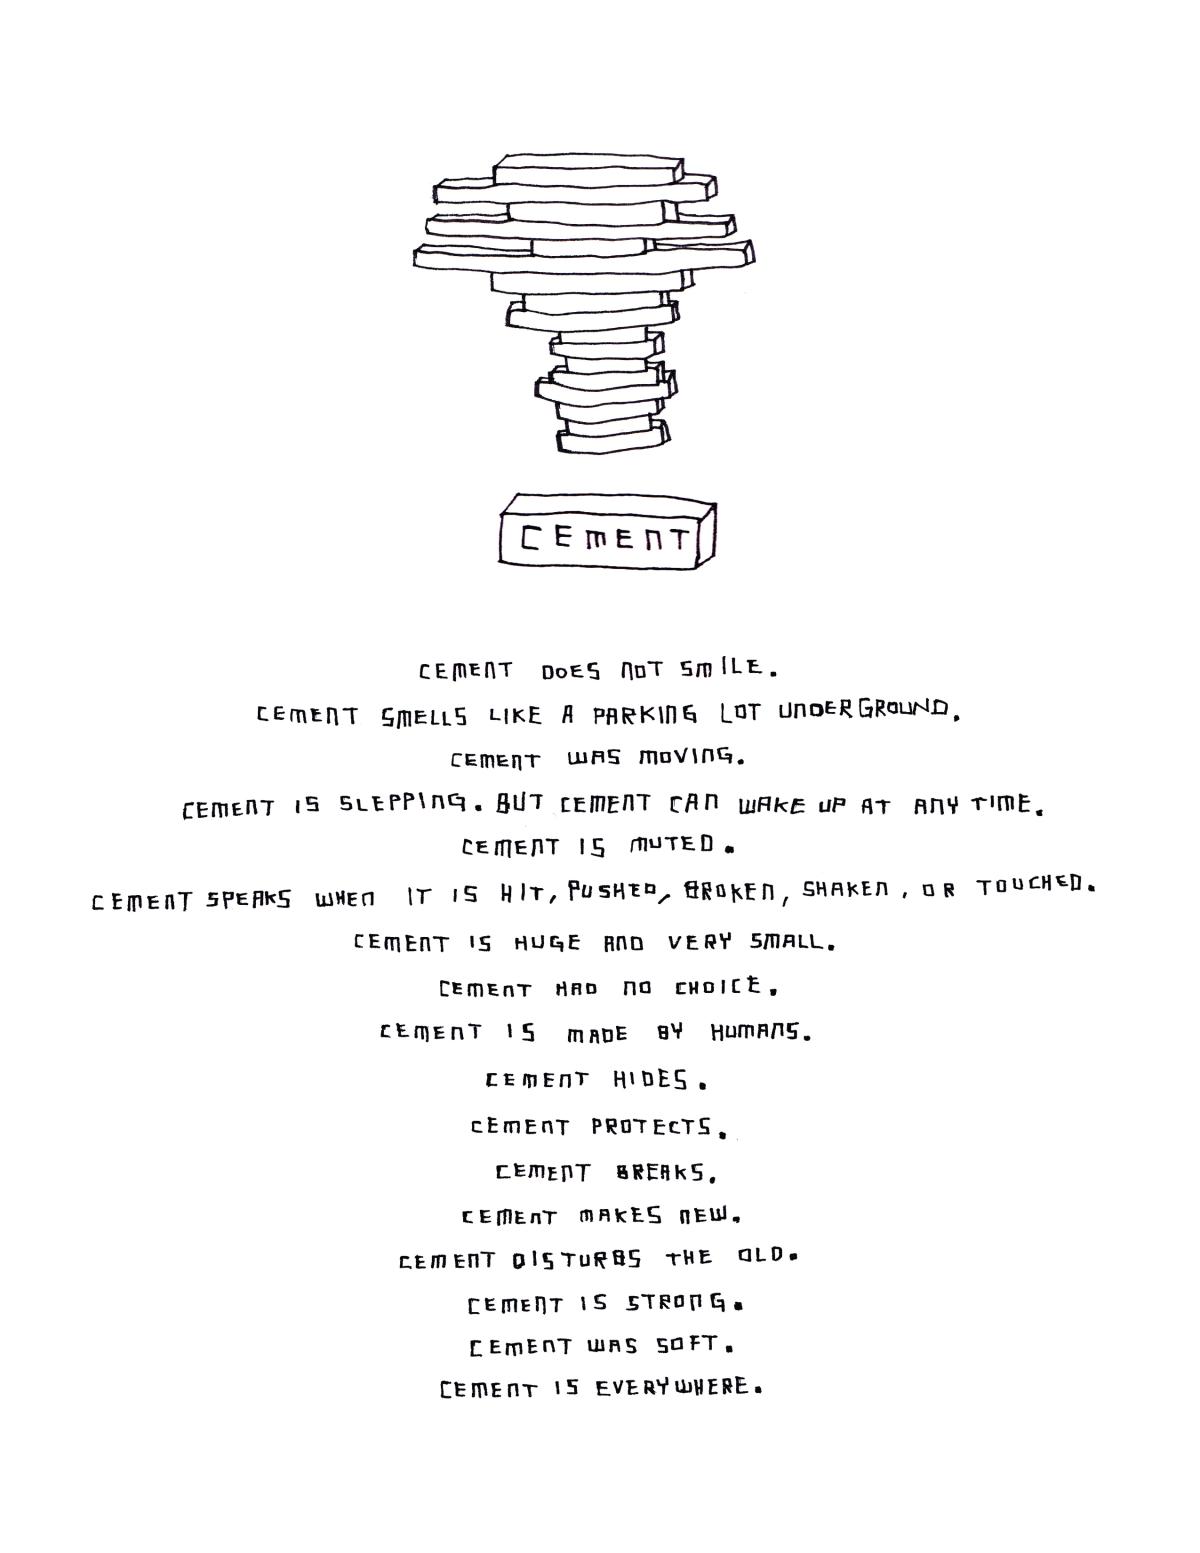 CEMENT
CEMENT DOES NOT SMILE.
CEMENT SMELLS LIKE A PARKING LOT UNDERGROUND.
CEMENT WAS MOVING.
CEMENT IS SLEPPING. BUT CEMENT CAN WAKE UP AT ANY TIME.
CEMENT IS MUTED.
CEMENT SPEAKS WHEN IT IS HIT, PUSHED, BROKEN, SHAKEN, OR TOUCHED.
CEMENT IS HUGE AND VERY SMALL.
CEMENT HAD NO CHOICE.
CEMENT IS MADE BY HUMANS.
CEMENT HIDES.
CEMENT PROTECTS.
CEMENT BREAKS.
CEMENT MAKES NEW.
CEMENT DISTURBS THE OLD.
CEMENT IS STRONG.
CEMENT WAS SOFT.
CEMENT IS EVERYWHERE.